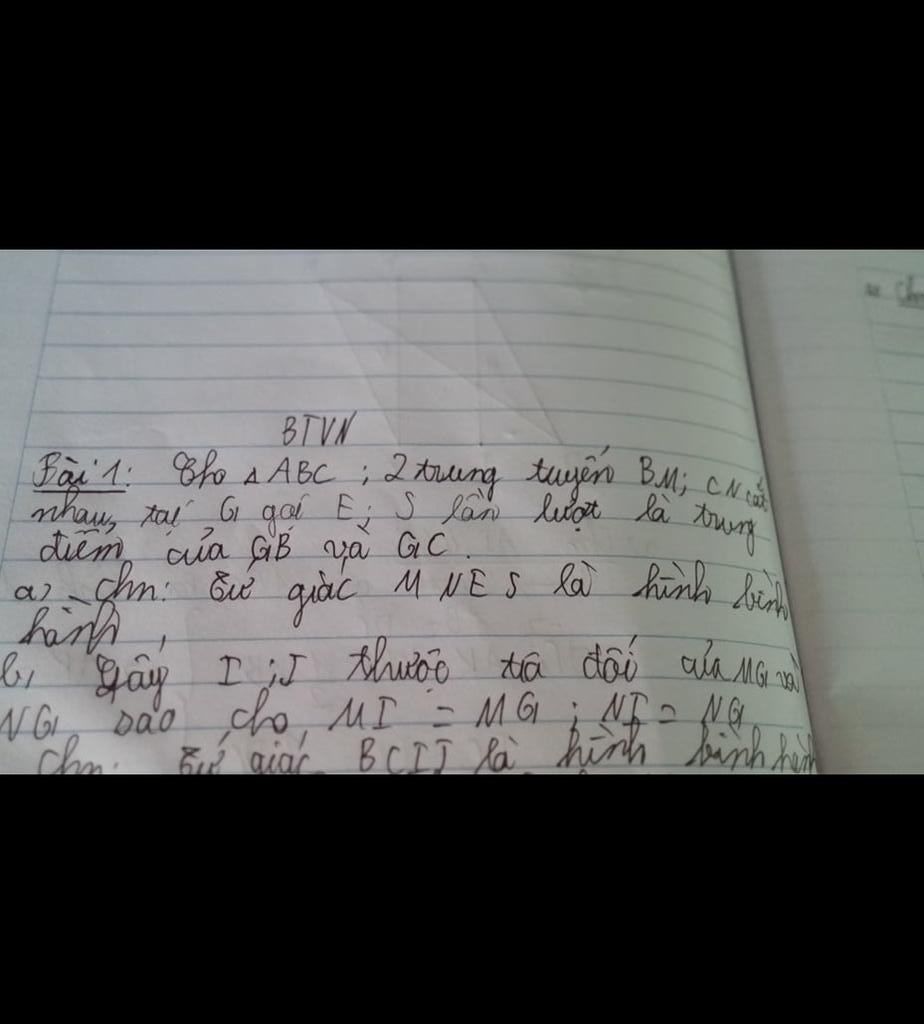 BTVN
Bài 1: Cho △ ABC ; 2 trung tuyến BM; CN cắt
nhau, tại G gọi E; S lần lượt là trung
điểm của GB và GC.
a, Chm: Tứ giác MNES là hình bình
hành,
b, Lấy I ; J thuộc tia đối của MG và
NG sao cho, MI = MG ; NJ = NG
Chm: Tứ giác BCIJ là hình bình hành